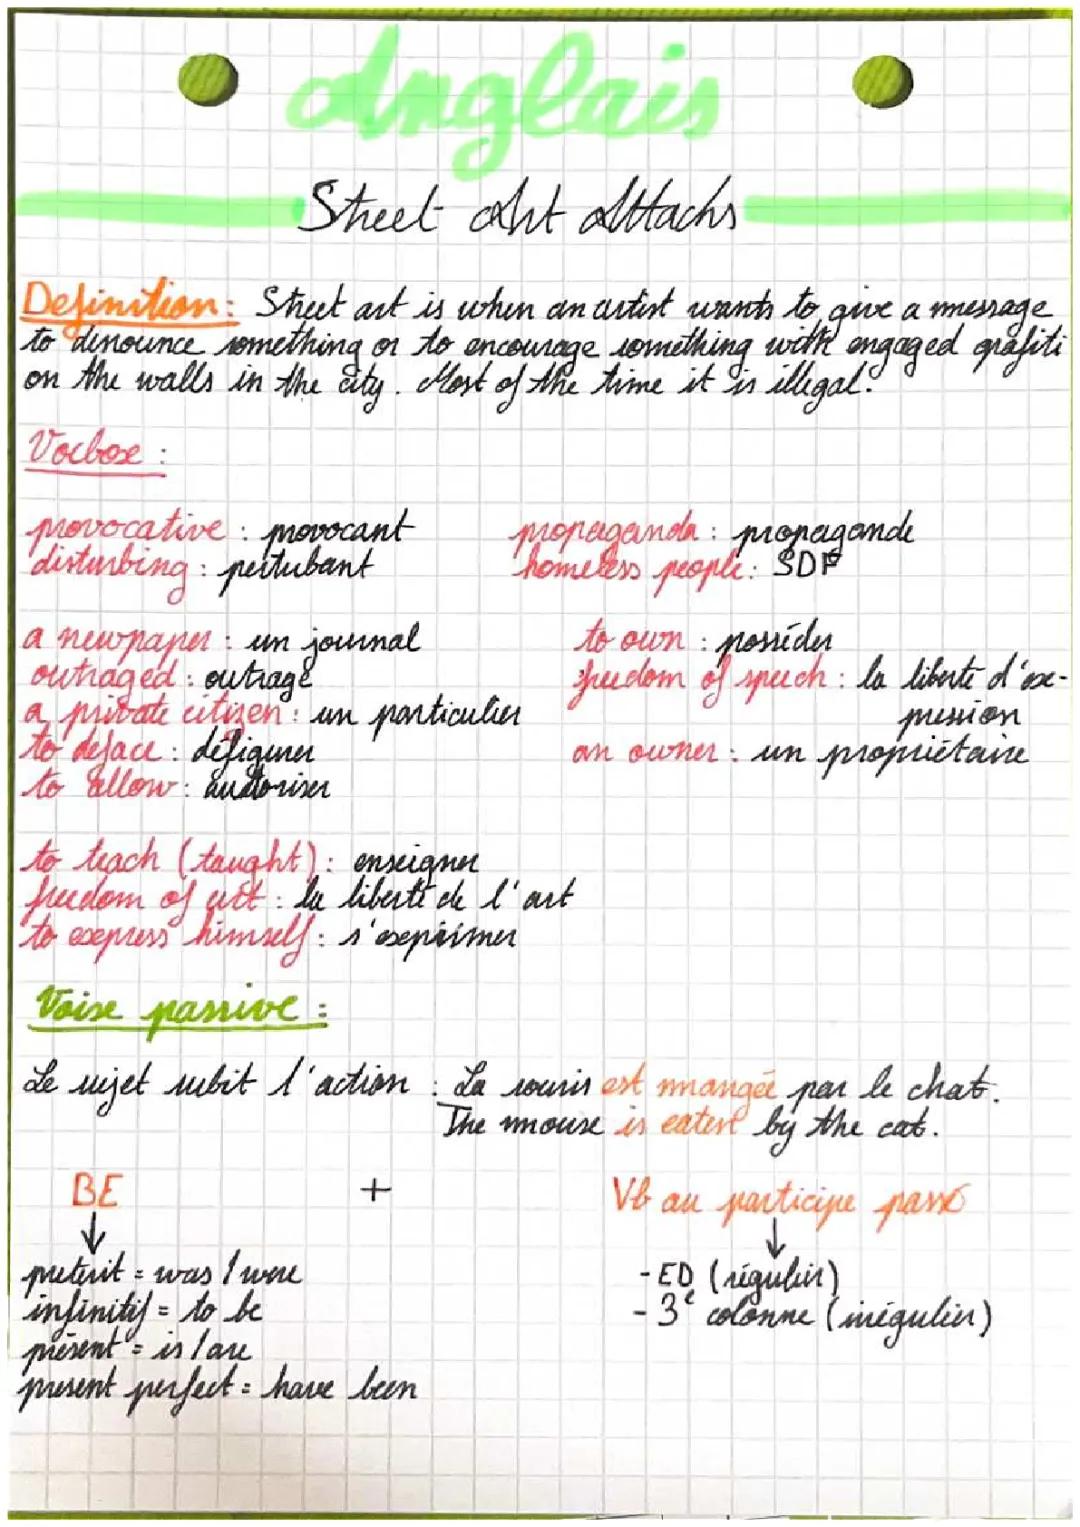 Anglais
Street Art Attacks
Definition: Street art is when an artist wants to give a message
to denounce something or to encourage something with engaged grafiti
on the walls in the city. Most of the time it is illegal.
Vocbox :
provocative : provocant
propaganda : propagande
disturbing : pertubant
homeless people : SDF
a newpaper : un journal
to own : posséder
outraged : outragé
freedom of speech : la liberté d'ex-
pression
a private citizen : un particulier
to deface : défigurer
an owner : un propriétaire
to allow : autoriser
to teach (taught) : enseigner
freedom of art : la liberté de l'art
to express himself : s'exprimer
Voixe passive :
Le sujet subit l'action : La souris est mangée par le chat.
The mouse is eaten by the cat.
BE + Vb au participe passé
↓ ↓
preterit = was / were
- ED (régulier)
infinitif = to be
- 3e colonne (irrégulier)
présent = is / are
present perfect = have been